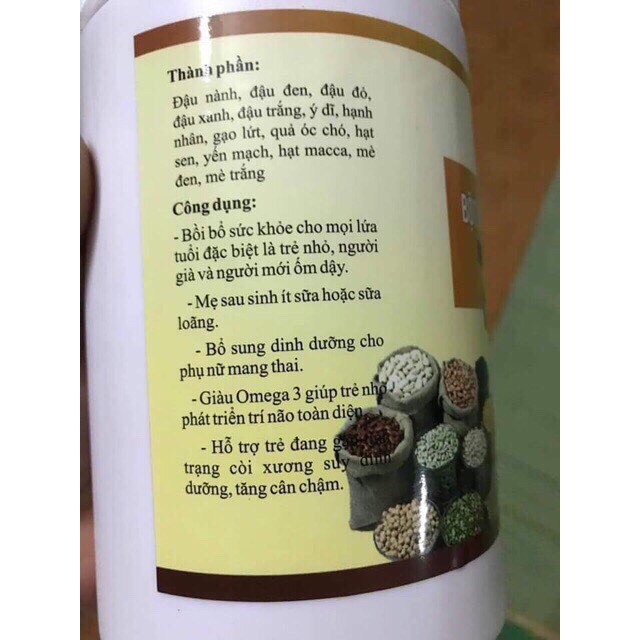 Thành phần:
Đậu nành, đậu đen, đậu đỏ,
đậu xanh, đậu trắng, ý dĩ, hạnh
nhân, gạo lứt, quả óc chó, hạt
sen, yến mạch, hạt macca, mè
đen, mè trắng
Công dụng:
- Bồi bổ sức khỏe cho mọi lứa
tuổi đặc biệt là trẻ nhỏ, người
già và người mới ốm dậy.
- Mẹ sau sinh ít sữa hoặc sữa
loãng.
- Bổ sung dinh dưỡng cho
phụ nữ mang thai.
- Giàu Omega 3 giúp trẻ nhỏ
phát triển trí não toàn diện.
- Hỗ trợ trẻ đang
trạng còi xương suy dinh
dưỡng, tăng cân chậm.